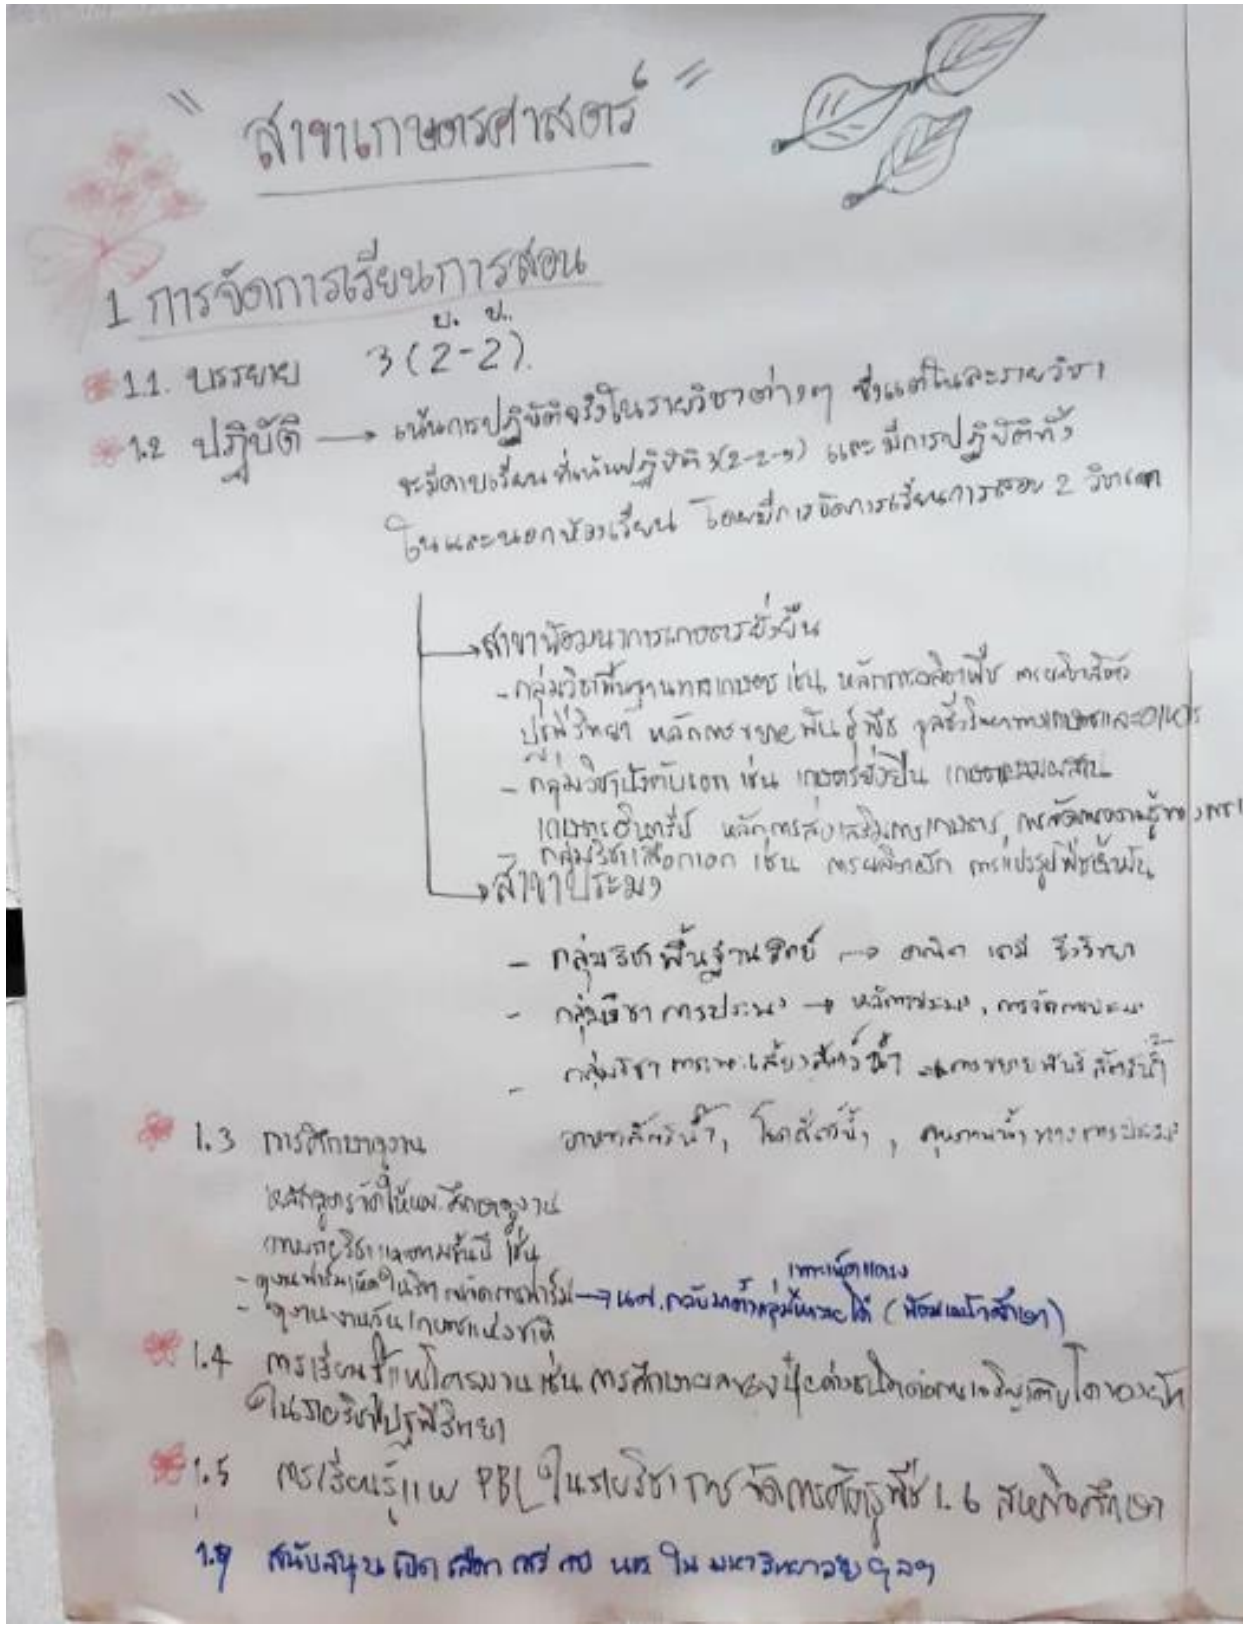 " สาขาเกษตรศาสตร์ "
1 การจัดการเรียนการสอน
บ. ป.
1.1. บรรยาย 3(2-2).
1.2 ปฏิบัติ → เน้นการปฏิบัติจริงในรายวิชาต่างๆ ซึ่งแต่ในละรายวิชา
จะมีคาบเรียนที่เน้นปฏิบัติ 3(2-2-5) และมีการปฏิบัติทั้ง
ในและนอกห้องเรียน โดยมีการจัดการเรียนการสอน 2 วิชาเอก
→ สาขาพัฒนาการเกษตรยั่งยืน
- กลุ่มวิชาพื้นฐานทางเกษตร เช่น หลักการผลิตพืช การผลิตสัตว์
ปฐพีวิทยา หลักการขยายพันธุ์พืช จุลชีววิทยาทางเกษตรและอาหาร
- กลุ่มวิชาบังคับเอก เช่น เกษตรยั่งยืน เกษตรผสมผสาน
เกษตรอินทรีย์ หลักการส่งเสริมการเกษตร,
กลุ่มวิชาเลือกเอก เช่น การผลิตผัก การแปรรูปพืชน้ำมัน
→ สาขาประมง
- กลุ่มวิชาพื้นฐานวิทย์ → คณิต เคมี ชีววิทยา
- กลุ่มวิชาการประมง → หลักการประมง, การจัดการประมง
- กลุ่มวิชาการเพาะเลี้ยงสัตว์น้ำ → การขยายพันธุ์สัตว์น้ำ
อาหารสัตว์น้ำ, โรคสัตว์น้ำ, คุณภาพน้ำทางการประมง
1.3 การศึกษาดูงาน
หลักสูตรจัดให้นศ. ศึกษาดูงาน
ตามรายวิชาและตามชั้นปี เช่น
เพาะเห็ดแครง
- ดูงานฟาร์มเห็ดในวิชาการจัดการฟาร์ม → นศ. กลับมาทำกลุ่มมีรายได้ (พัฒนานักศึกษา)
- ดูงานงานวันเกษตรแห่งชาติ
1.4 การเรียนรู้แบบโครงงาน เช่น การศึกษาผลของปุ๋ยต่างชนิดต่อการเจริญเติบโตของผัก
ในรายวิชาปฐพีวิทยา
1.5 การเรียนรู้แบบ PBL ในรายวิชาการจัดการศัตรูพืช 1.6 สหกิจศึกษา
1.7 สนับสนุน ใน มหาวิทยาลัยฯลฯ